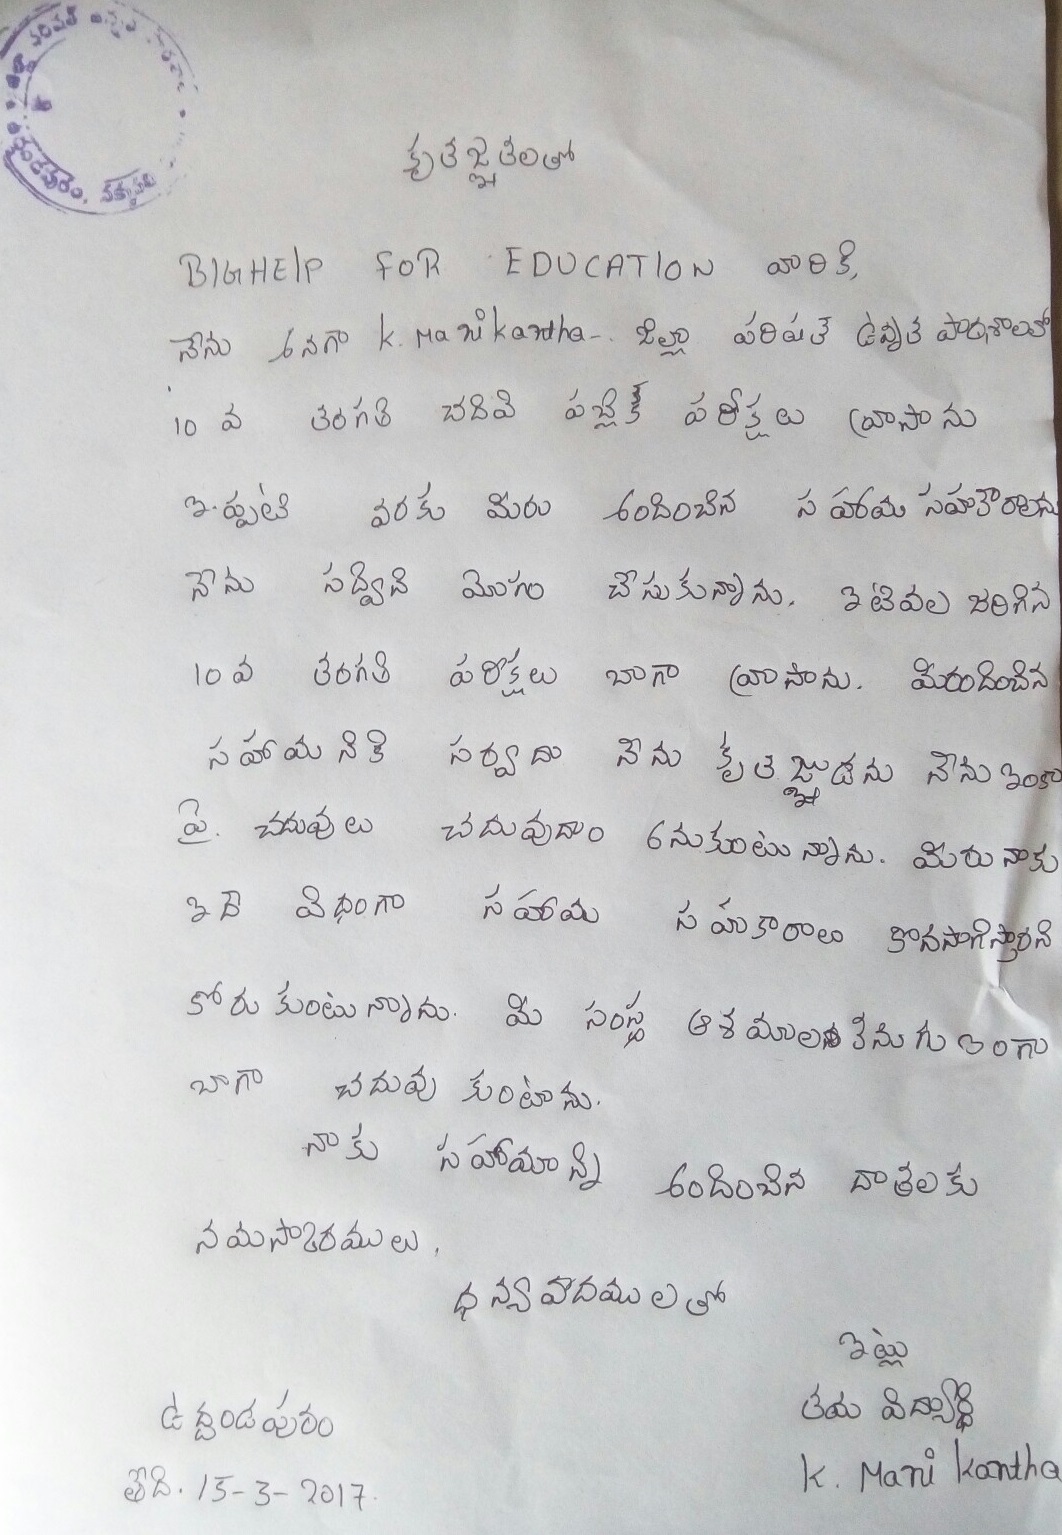 జిల్లా పరిషత్
ఉద్దండపురం, నక్కపల్లి
కృతజ్ఞతలతో
BIGHElP FOR EDUCATION వారికి,
నేను అనగా K. Manikantha-. జిల్లా పరిషత్ ఉన్నత పాఠశాలలో
10 వ తరగతి చదివి పబ్లిక్ పరీక్షలు వ్రాసాను
ఇప్పటి వరకు మీరు అందించిన సహాయ సహకారాలను
నేను సద్వినియోగం చేసుకున్నాను. ఇటివల జరిగిన
10 వ తరగతి పరీక్షలు బాగా వ్రాసాను. మీరందించిన
సహాయనికి సర్వదా నేను కృతజ్ఞుడను నేను ఇంకా
పై. చదువులు చదువుదాం అనుకుంటున్నాను. మీరు నాకు
ఇదే విధంగా సహాయ సహకారాలు కొనసాగిస్తారని
కోరుకుంటున్నాను. మీ సంస్థ ఆశయముల ఇంగా
బాగా చదువు కుంటాను.
నాకు సహాయాన్ని అందించిన దాతలకు
నమస్కారములు,
ధన్యవాదములతో
ఇట్లు
ఉద్దండపురం తమ విద్యార్థి
తేది. 15-3-2017. K. Mani Kantha